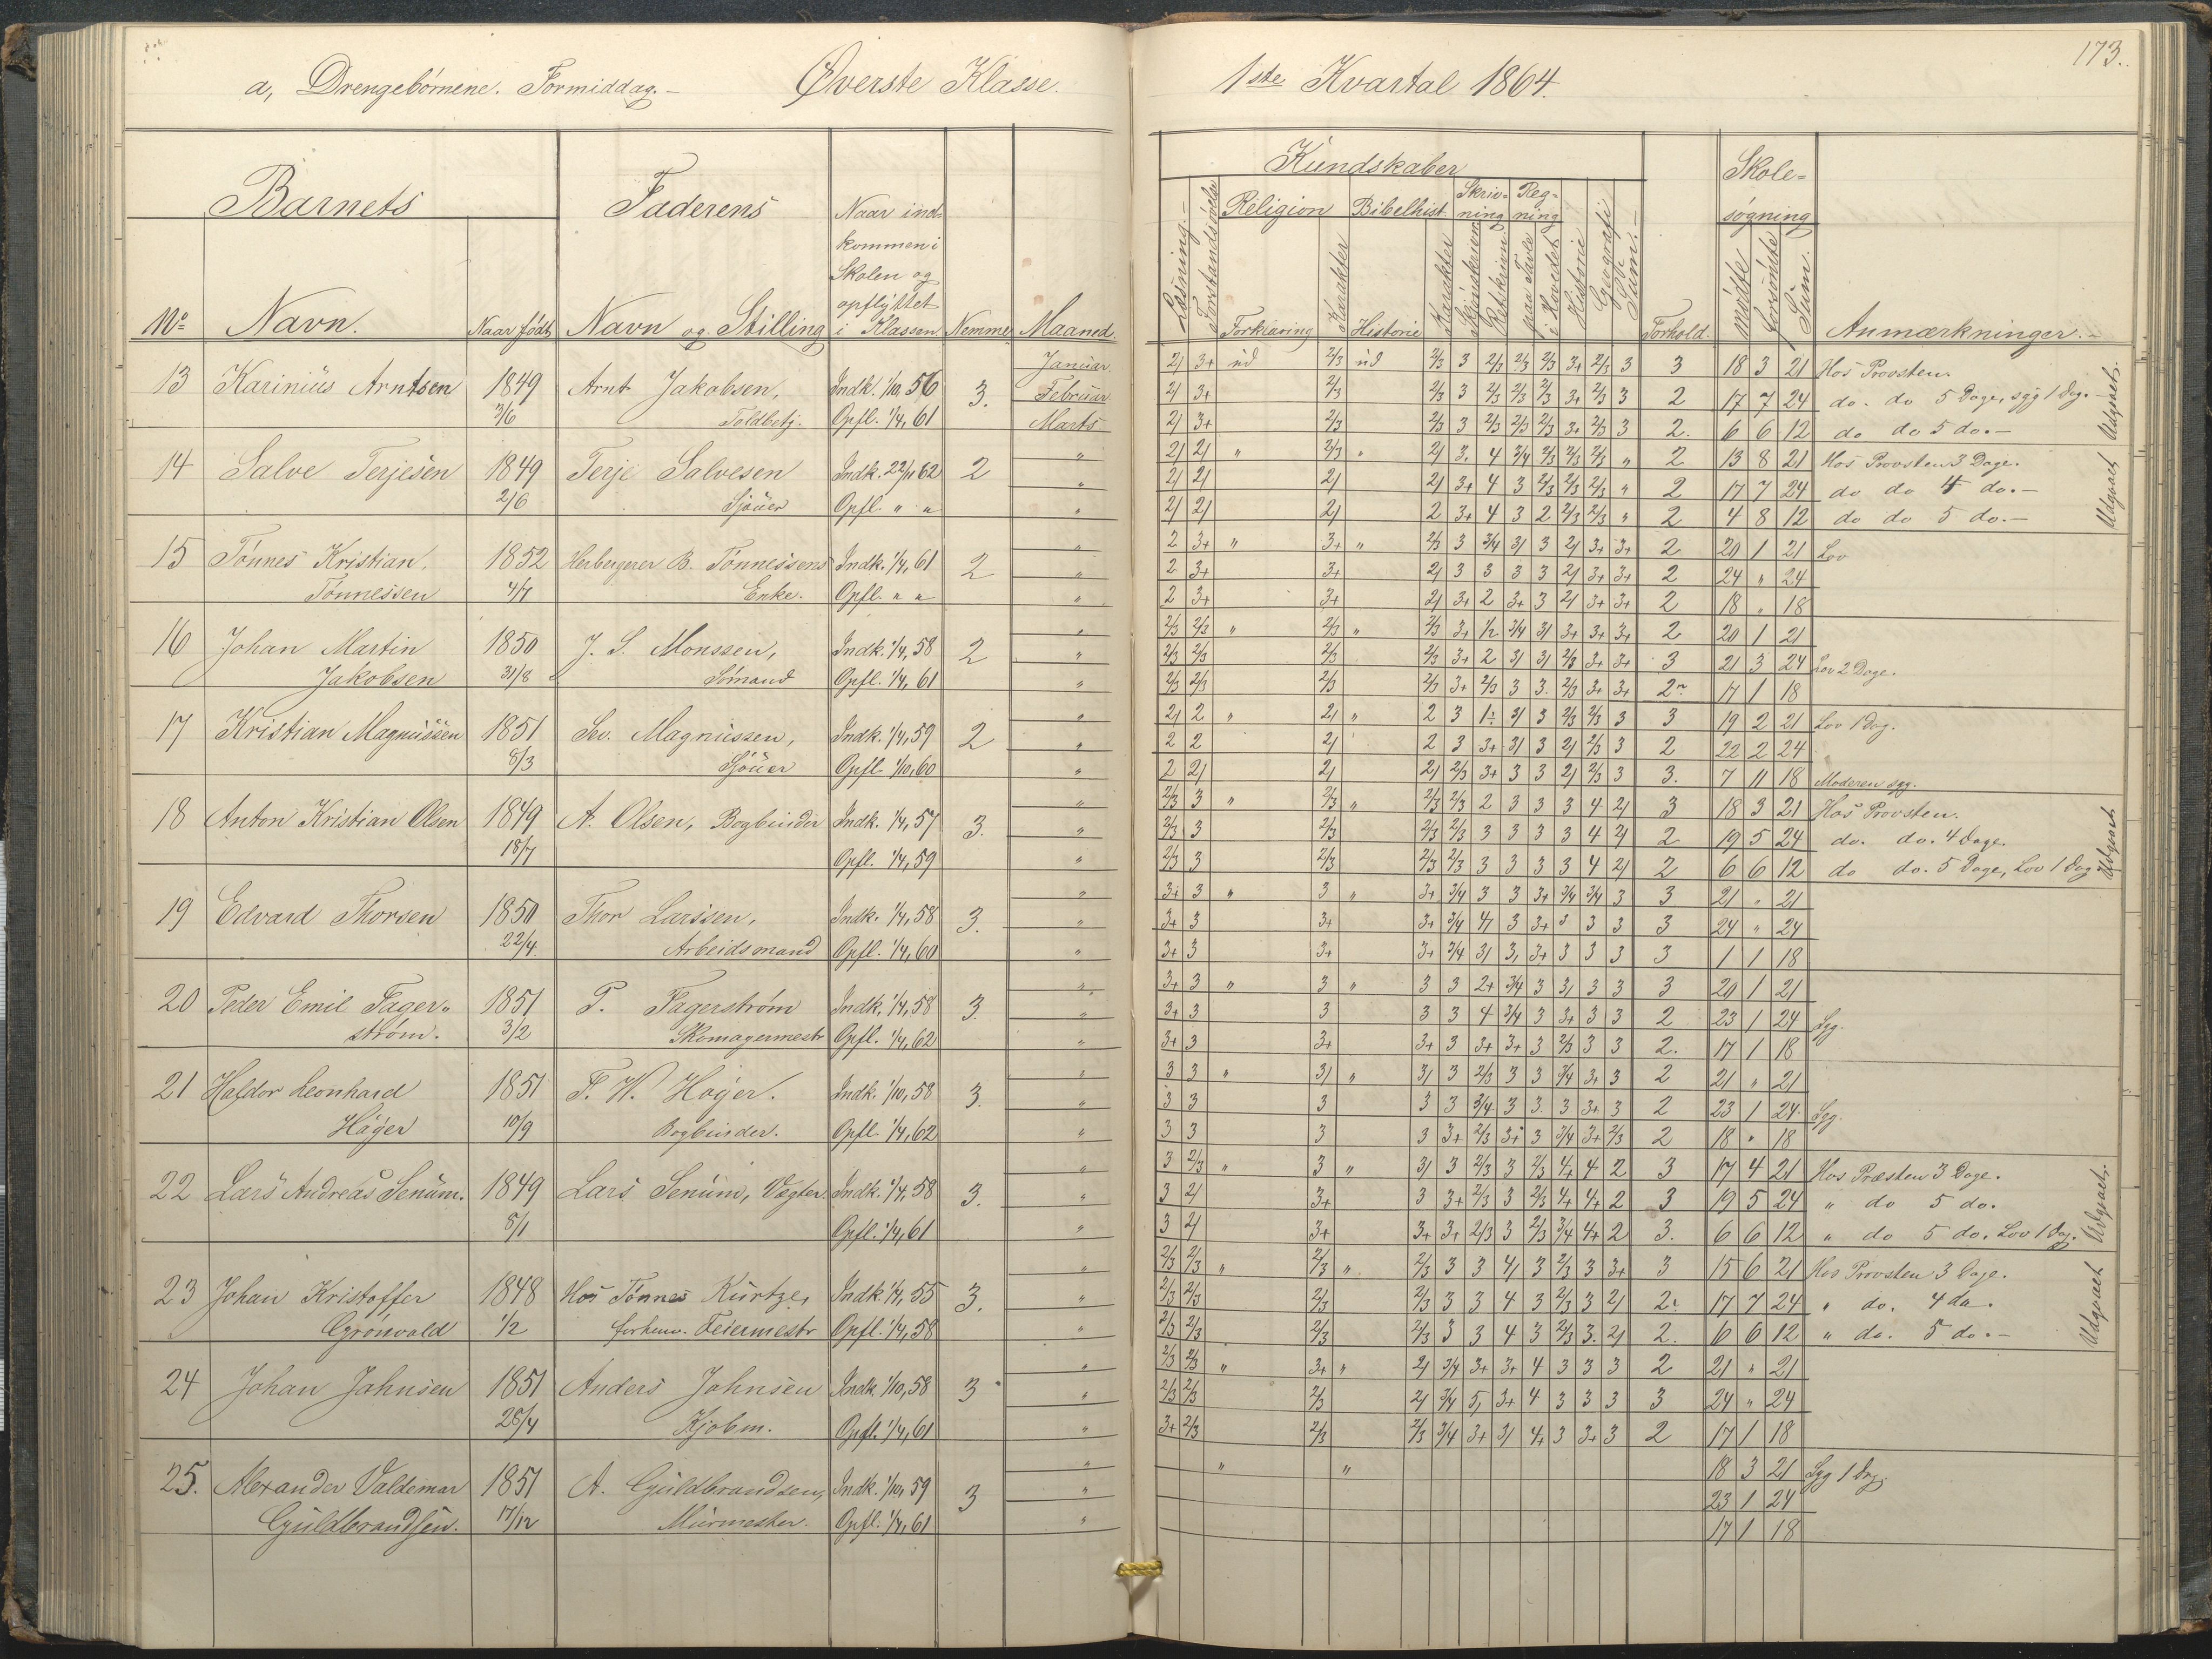 173.
a, Drengebørnene. Formiddag.- Øverste Klasse. 1ste Kvartal 1864.
Barnets Faderens Naar ind-
kommen i
Skolen og
opflyttet
No Navn. Naar født Navn og Stilling i Klassen. Nemme Maaned.
Kundskaber Skole-
søgning
Læsning.- Forstandsøvelse Religion Bibelhist. Skriv-
ning Reg-
ning
Forklaring Karakter Historie Karakter Skjønskriven Retskrivn. paa Tavle i Hovedet Historie Geografi Forhold. mødte forsømte Sum. Anmærkninger.-
13 Karinius Arntsen 1849 Arnt Jakobsen, Indk. 1/10, 56 3. Januar
3/6 Toldbetj. Opfl. 1/4, 61 Februar
Marts
2/ 3+ ud 2/3 ud 2/3 3 2/3 2/3 2/3 3+ 2/3 3 3 18 3 21 Hos Provsten.
2/ 3+ 2/3 2/3 3 2/3 2/3 2/3 3+ 2/3 3 2 17 7 24 do. do 5 Dage, syg 1 Dag.
2/ 3+ 2/3 2/3 3 2/3 2/3 2/3 3+ 2/3 3 2. 6 6 12 do do 5 do.- Udgaaet.
14 Salve Terjesen 1849 Terje Salvesen Indk. 22/11 62 2 "
2/6 Sjouer Opfl. " "
2/ 2/ " 2/3 " 2/ 3. 4 3/4 2/3 2/3 2/3 " 2 13 8 21 Hos Provsten 3 Dage.
2/ 2/ 2/ 2/ 3+ 4 3 2/3 2/3 2/3 " 2 17 7 24 do do 4 do.-
2/ 2/ 2/ 2 3+ 4 3 2 2/3 2/3 " 2 4 8 12 do do 5 do.- Udgaaet
15 Tønnes Kristian, 1852 Herbergerer B. Tønnessens Indk. 1/4, 61 2 "
Tønnessen 4/7 Enke. Opfl. " "
2 3+ " 3+ " 2/3 3 3/4 3/ 3 2/ 3+ 3+ 2 20 1 21 Lov
2 3+ 3+ 2/ 3 3 3 3 2/ 3+ 3+ 2 24 " 24
2 3+ 3+ 2/ 3+ 2 3+ 3 2/ 3+ 3+ 2 18 " 18
16 Johan Martin 1850 J. S. Monssen, Indk. 1/4, 58 2 "
Jakobsen 31/8 Sømand Opfl. 1/4, 61
2/3 2/3 " 2/3 " 2/3 3+ 1/2 3/4 3/ 3+ 3+ 3+ 2 20 1 21
2/3 2/3 2/3 2/3 3+ 2 3/ 3/ 2/3 3+ 3+ 3 21 3 24 Lov 2 Dage.
2/3 2/3 2/3 2/3 3+ 2/3 3 3. 2/3 3+ 3+ 2 17 1 18
17 Kristian Magnussen 1851 Sev. Magnussen, Indk. 1/4, 59 2 "
8/3 Sjouer Opfl. 1/10, 60
2/ 2 " 2/ " 2 3 3/ 3 2/3 2/3 3 3 19 2 21 Lov 1 Dag.
2 2 2/ 2 3 3+ 3/ 3 2/ 2/3 3 2 22 2 24
2 2/ 2/ 2/ 2/3 3+ 3 3 2/ 2/3 3 3. 7 11 18 Moderen syg.
18 Anton Kristian Olsen 1849 A. Olsen, Bogbinder Indk. 1/4, 57 3. "
18/7 Opfl. 1/4, 59
2/3 3 " 2/3 " 2/3 2/3 2 3 3 3 4 2/ 3 18 3 21 Hos Provsten.
2/3 3 2/3 2/3 2/3 3 3 3 3 4 2/ 2 19 5 24 do. do. 4 Dage.
2/3 3 2/3 2/3 2/3 3 3 3 3 4 2/ 2 6 6 12 do do. 5 Dage, Lov 1 Dag Udgaaet
19 Edvard Thorsen 1850 Thor Larssen, Indk. 1/4, 58 3. "
22/4. Arbeidsmand Opfl. 1/4, 60
3+ 3 " 3 " 3+ 3/4 3 3 3+ 3/4 3/4 3 3 21 " 21
3+ 3 3+ 3+ 3/4 4/ 3 3+ 3 3 3 3 24 " 24
3+ 3 3+ 3+ 3/4 3/ 3, 3+ 3 3 3 3 1 1 18
20 Peder Emil Fager- 1851 P. Fagerstrøm Indk. 1/4, 58 3. "
strøm. 3/2 Skomagermestr Opfl. 1/4, 62
3+ 3 " 3 " 3 3 2+ 3/4 3 3/ 3 3 3 20 1 21
3+ 3 3 3 3 4 3/4 3 3+ 3 3 2 23 1 24 Syg.
3+ 3 3+ 3+ 3 3+ 3+ 3 2/3 3 3 2. 17 1 18
21 Haldor Leonhard 1851 F. W. Høyer. Indk. 1/10, 58 3. "
Høyer 10/9 Bogbinder. Opfl. 1/4, 62
3 3 " 3/ " 3/ 3 2/3 3 3 3/4 3+ 3 2 21 " 21
3 3 3 3 3 3/4 3 3. 3 3+ 3 2 23 1 24. Syg.
3 3 3 3 3+ 2/3 3+ 3 3/4 3+ 2/3 2 18 " 18
22 Lars Andreas Senum. 1849 Lars Senum, Vægter. Indk. 1/4. 58 3. "
5/1 Opfl. 1/4, 61
3 2/3 " 3 " 3/ 3 2/3 3 2/3 4+ 4 2 3 17 4 21 Hos Præsten 3 Dage.
3 2/ 3+ 3 3+ 2/3 3 2/3 4+ 4+ 2 3 19 5 24 " do 5 do.
3 2/ 3+ 3+ 3+ 2/3 3 2/3 3/4 4+ 2 3. 6 6 12 " do 5 do. Lov 1 Dag. Udgaaet.
23 Johan Kristoffer 1848 Hos Tønnes Kurtze, Indk. 1/4, 55 3. "
Grønvold 1/2 forhenv. Feiermestr Opfl. 1/4, 58
2/3 2/3 " 2/3 " 2/3 3 3 4/ 3 2/3 3 3+ 3 15 6 21 Hos Provsten 3 Dage.
2/3 2/3 2/3 2/3 3 3 4 3 2/3 3 2/ 2 17 7 24 " do. 4 do.
2/3 2/3 2/3 2/3 3 3 4 3 2/3 3. 2/ 2. 6 6 12 " do. 5 do.- Udgaaet
24 Johan Johnsen 1851 Anders Johnsen Indk. 1/10, 58 3 "
28/4 Kjøbm. Opfl. 1/4, 61
2/3 2/3 " 3+ " 2/ 3/4 3+ 3+ 4 3 3 3 2 21 " 21
2/3 2/3 2/3 2/ 3/4 5, 3+ 4 3 3 3 3 24 " 24
3+ 2/3 2/3 2/3 3/4 3+ 3/ 4+ 3 3+ 3 2 17 1 18
25. Alexander Valdemar 1851 A. Guldbrandsen, Indk. 1/10, 59 3 "
Guldbrandsen. 17/12 Murmester. Opfl. 1/4, 61
" " 18 3 21 Syg 1 Dag.
23 1 24
17 1 18